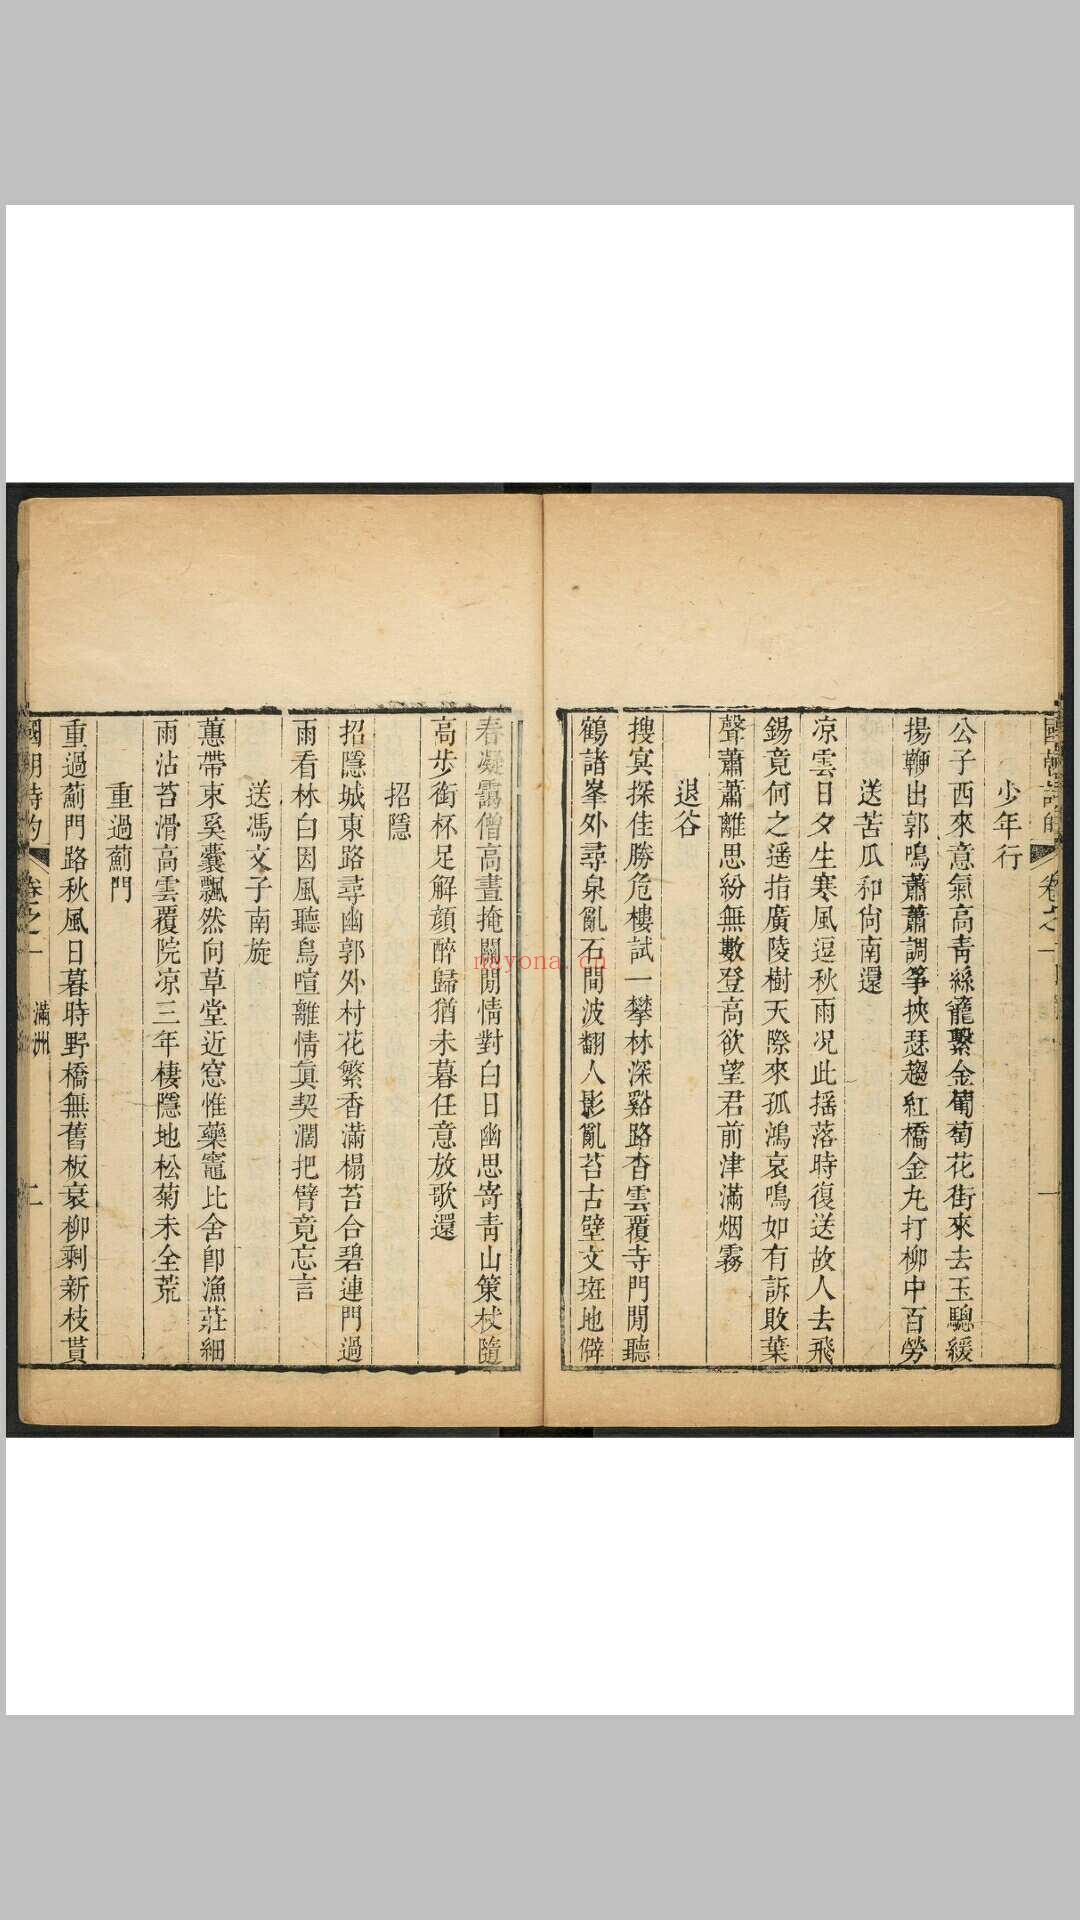 少年行
公子西來意氣高青絲籠繫金葡萄花街來去玉驄緩
揚鞭出郭鳴蕭蕭調筝挾瑟趨紅橋金丸打柳中百勞
送苦瓜和尙南還
凉雲日夕生寒風逗秋雨况此摇落時復送故人去飛
錫竟何之遥指廣陵樹天際來孤鴻哀鳴如有訴敗葉
聲蕭蕭離思紛無數登高欲望君前津滿烟霧
退谷
搜冥探佳勝危樓試一攀林深谿路杳雲覆寺門閒聽
鶴諸峯外尋泉亂石間波翻人影亂苔古壁文斑地僻
春凝靄僧高晝掩關閒情對白日幽思寄靑山策杖隨
高步銜杯足解顔醉歸猶未暮任意放歌還
招隱
招隱城東路尋幽郭外村花繁香滿榻苔合碧連門過
雨看林白因風聽鳥喧離情眞契濶把臂竟忘言
送馮文子南旋
蕙帶束奚囊飄然向草堂近窓惟藥竈比舍卽漁莊細
雨沾苔滑高雲覆院凉三年棲隱地松菊未全荒
重過薊門
重過薊門路秋風日暮時野橋無舊板衰柳剩新枝貰
卷之一
滿洲
二
nayona.cn